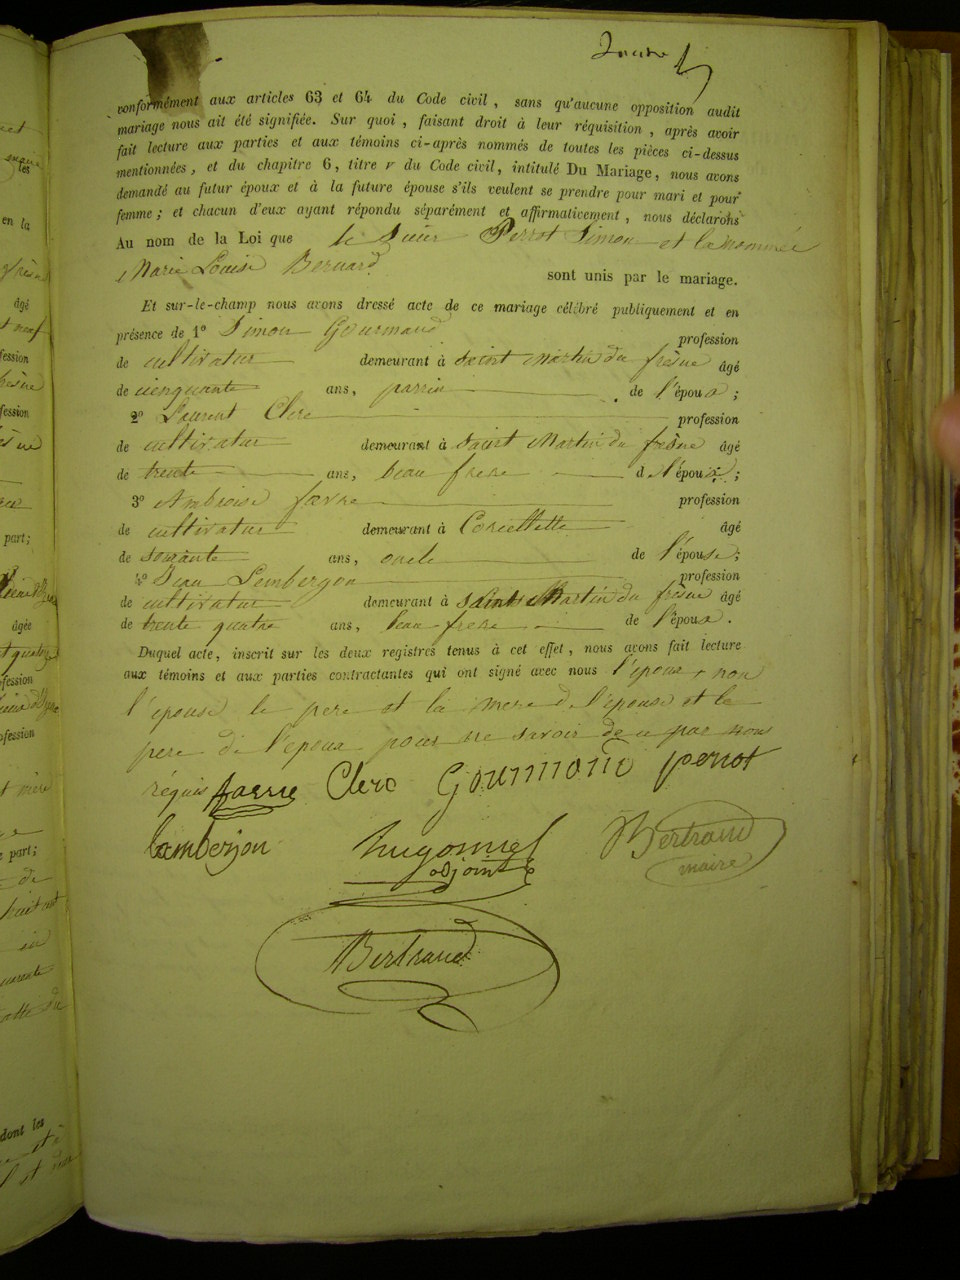 conformément aux articles 63 et 64 du Code civil, sans qu'aucune opposition audit
mariage nous ait été signifiée. Sur quoi, faisant droit à leur réquisition, après avoir
fait lecture aux parties et aux témoins ci-après nommés de toutes les pièces ci-dessus
mentionnées, et du chapitre 6, titre v du Code civil, intitulé Du Mariage, nous avons
demandé au futur époux et à la future épouse s'ils veulent se prendre pour mari et pour
femme; et chacun d'eux ayant répondu séparément et affirmativement, nous déclarons
Au nom de la Loi que le Sieur Perrot Simon et la nommée
Marie Louise Bernard sont unis par le mariage.
Et sur-le-champ nous avons dressé acte de ce mariage célébré publiquement et en
présence de 1º Simon Gourmand profession
de cultivateur demeurant à Saint Martin du fresne âgé
de cinquante ans, parrin de l'époux;
2º Laurent Clerc profession
de cultivateur demeurant à Saint Martin du fresne âgé
de trente ans, beau frere de l'époux;
3º Ambroise favre profession
de cultivateur demeurant à Corcellette âgé
de soixante ans, oncle de l'épouse;
4º Jean Lemberjon profession
de cultivateur demeurant à Saint Martin du fresne âgé
de trente quatre ans, beau frere de l'époux.
Duquel acte, inscrit sur les deux registres tenus à cet effet, nous avons fait lecture
aux témoins et aux parties contractantes qui ont signé avec nous l'époux, non
l'épouse le pere et la mere de l'épouse et le
pere de l'époux pour ne savoir de ce par nous
réquis favre Clerc Gourmand perrot
lamberjon hugonnet Bertrand
adjoint maire
Bertrand